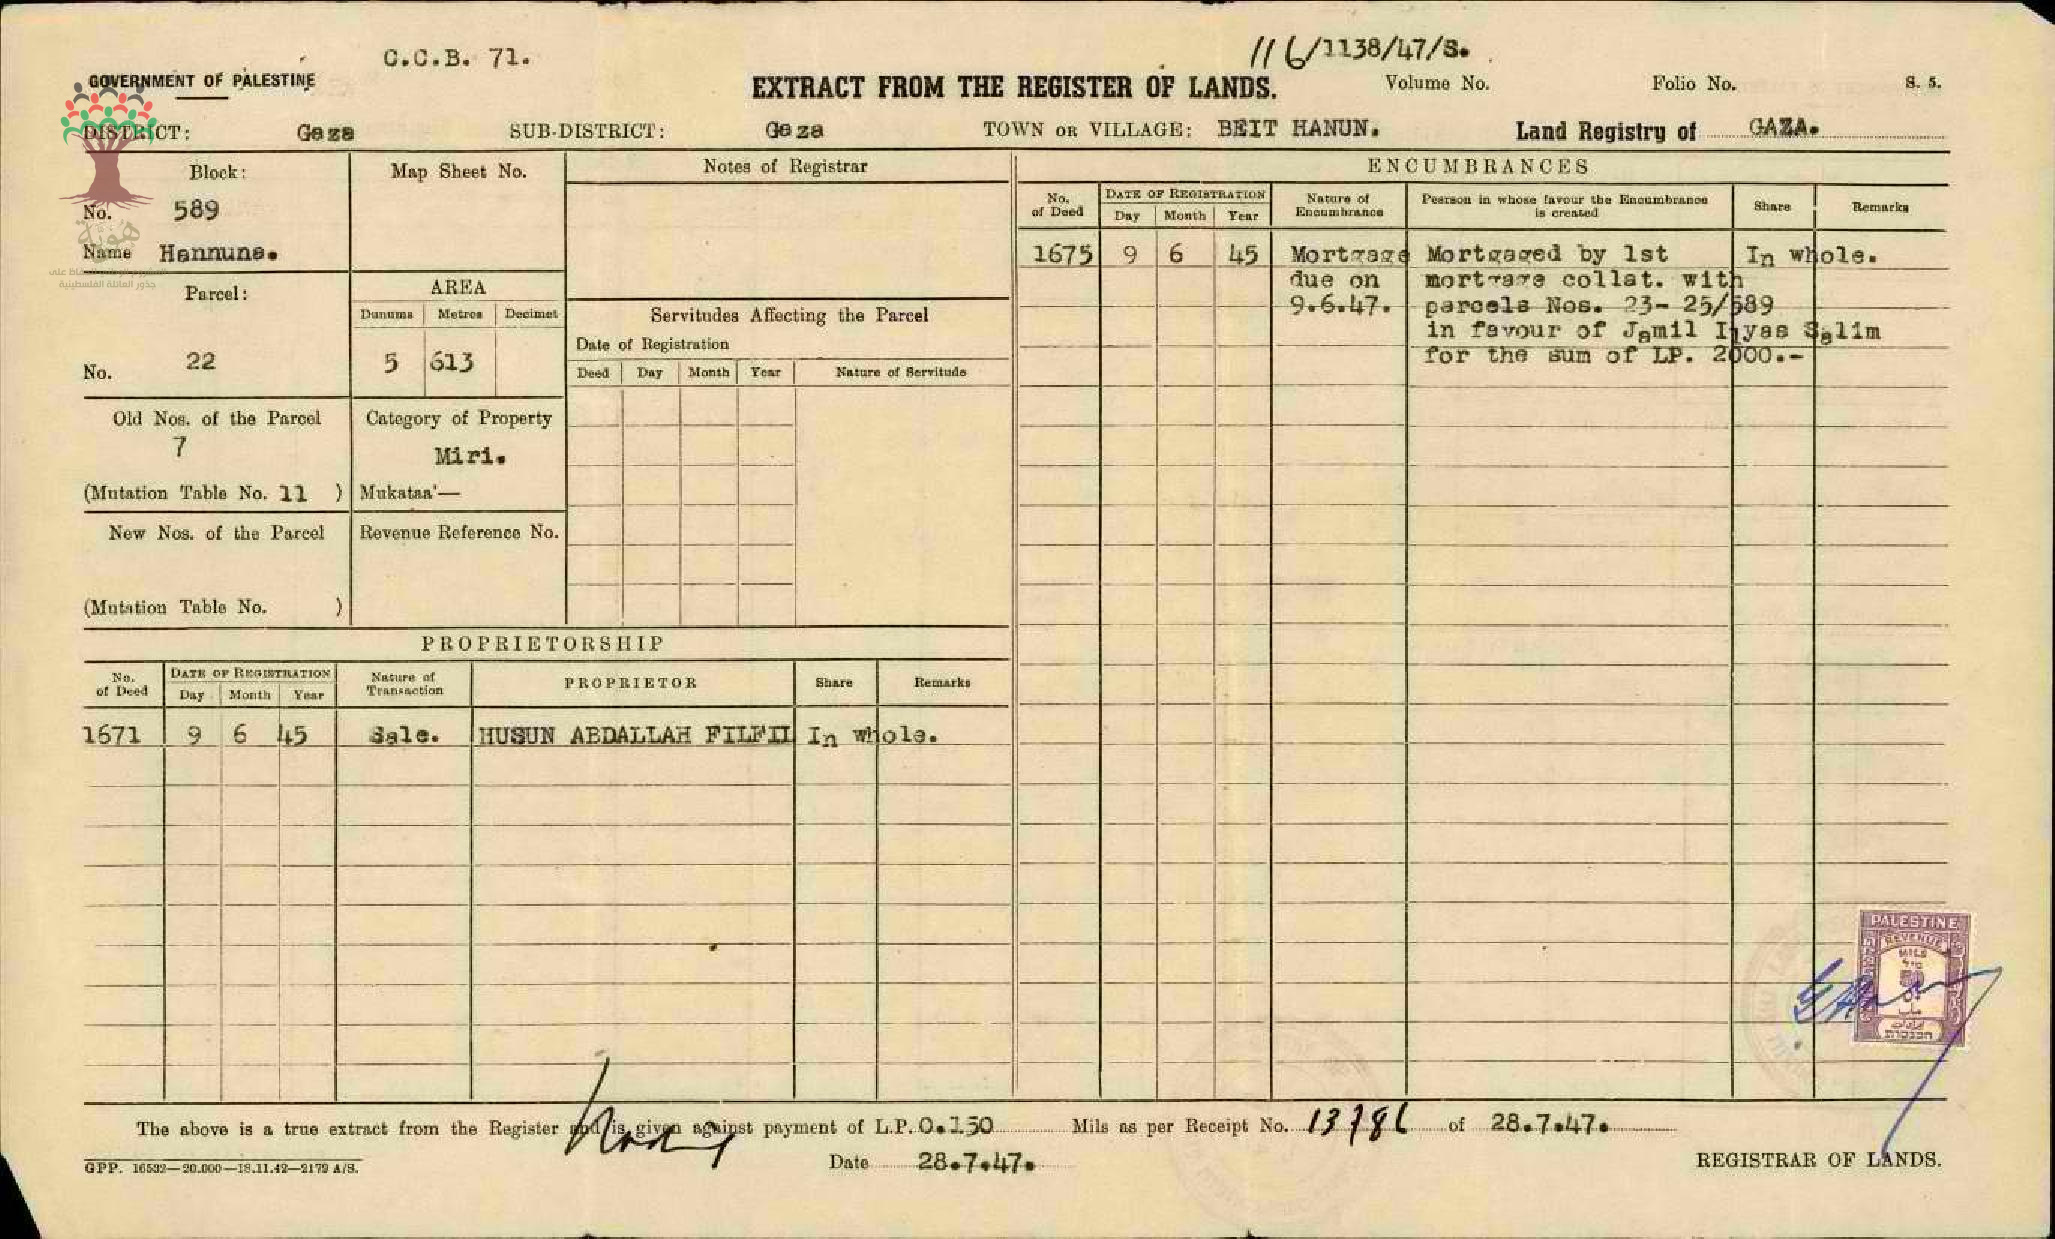 C.C.B. 71.
116/1138/47/S.
GOVERNMENT OF PALESTINE
EXTRACT FROM THE REGISTER OF LANDS.
Volume No.
Folio No.
S. 5.
DISTRICT: Gaza
SUB-DISTRICT: Gaza
TOWN OR VILLAGE: BEIT HANUN.
Land Registry of GAZA.
Block:
No. 589
Name Hannune.
هوية
جذور العائلة الفلسطينية
Map Sheet No.
Notes of Registrar
Parcel:
No. 22
AREA
Dunums Metres Decimet
5 613
Servitudes Affecting the Parcel
Date of Registration
Deed Day Month Year Nature of Servitude
Old Nos. of the Parcel
7
(Mutation Table No. 11 )
Category of Property
Miri.
Mukataa'—
New Nos. of the Parcel
(Mutation Table No. )
Revenue Reference No.
PROPRIETORSHIP
No. of Deed
DATE OF REGISTRATION
Day Month Year
Nature of Transaction
PROPRIETOR
Share
Remarks
1671 9 6 45 Sale. HUSUN ABDALLAH FILFIL In whole.
ENCUMBRANCES
No. of Deed
DATE OF REGISTRATION
Day Month Year
Nature of Encumbrance
Pearson in whose favour the Encumbrance is created
Share
Remarks
1675 9 6 45 Mortgage Mortgaged by 1st In whole.
due on mortgage collat. with
9.6.47. parcels Nos. 23- 25/589
in favour of Jamil Ilyas Salim
for the sum of LP. 2000.-
PALESTINE
REVENUE
MILS
מיל
50
مل
ايرادات
הכנסות
The above is a true extract from the Register and is given against payment of L.P. 0.150 Mils as per Receipt No. 13786 of 28.7.47.
GPP. 16532—20.000—18.11.42—2179 A/S.
Date 28.7.47.
REGISTRAR OF LANDS.